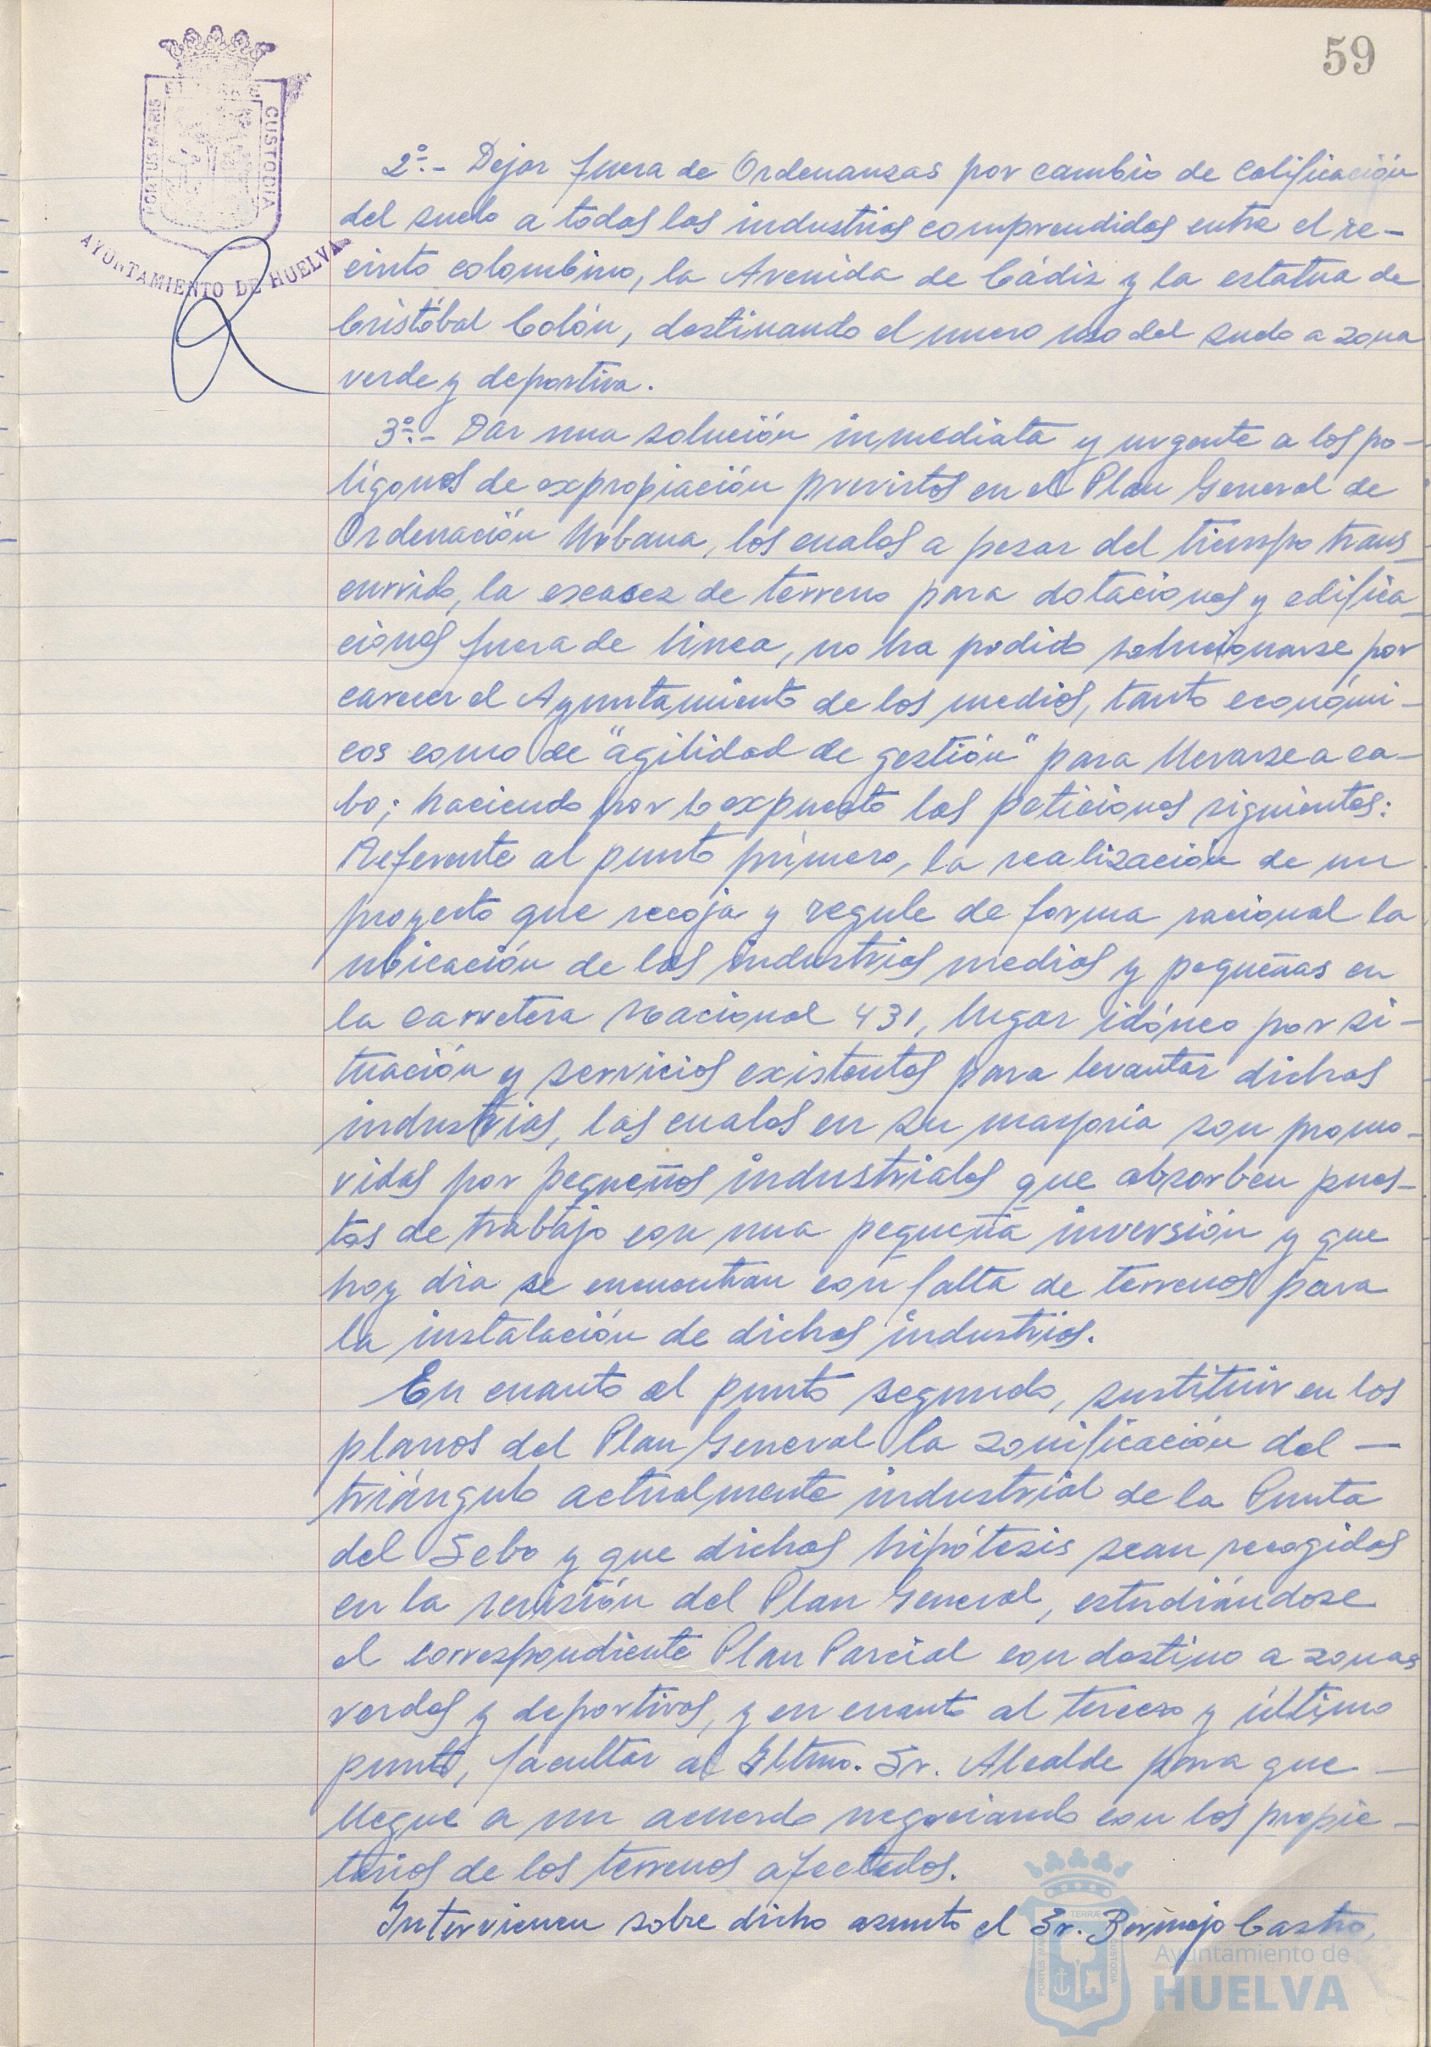 59
PORTUS MARIS
CUSTODIA
AYUNTAMIENTO DE HUELVA
2º.- Dejar fuera de Ordenanzas por cambio de calificación
del suelo a todas las industrias comprendidas entre el re-
cinto colombino, la Avenida de Cádiz y la estatua de
Cristóbal Colón, destinando el nuevo uso del suelo a zona
verde y deportiva.
3º.- Dar una solución inmediata y urgente a los po-
lígonos de expropiación previstos en el Plan General de
Ordenación Urbana, los cuales a pesar del tiempo trans-
currido, la escasez de terreno para dotaciones y edifica-
ciones fuera de linea, no ha podido solucionarse por
carecer el Ayuntamiento de los medios, tanto económi-
cos como de "agilidad de gestión" para llevarse a ca-
bo; haciendo por lo expuesto las peticiones siguientes:
Referente al punto primero, la realización de un
proyecto que recoja y regule de forma racional la
ubicación de las industrias medias y pequeñas en
la Carretera Nacional 431, lugar idóneo por si-
tuación y servicios existentes para levantar dichas
industrias, las cuales en su mayoria son promo-
vidas por pequeños industriales que absorben pues-
tos de trabajo con una pequeña inversión y que
hoy dia se encuentran con falta de terrenos para
la instalación de dichas industrias.
En cuanto al punto segundo, sustituir en los
planos del Plan General la zonificación del -
triángulo actualmente industrial de la Punta
del Sebo y que dichas hipótesis sean recogidas
en la revisión del Plan General, estudiándose
el correspondiente Plan Parcial con destino a zonas
verdes y deportivas, y en cuanto al tercero y último
punto, facultar al Iltmo. Sr. Alcalde para que -
llegue a un acuerdo negociando con los propie-
tarios de los terrenos afectados.
Intervienen sobre dicho asunto el Sr. Bermejo Castro,
PORTUS MARIS
TERRAE
CUSTODIA
Ayuntamiento de
HUELVA